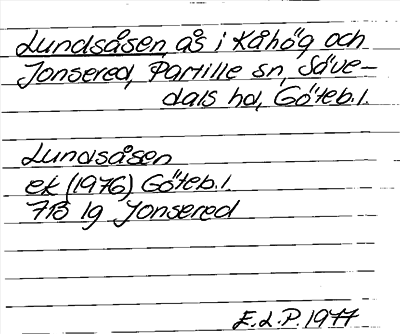 Lundsåsen, ås i Kåhög och
Jonsered, Partille sn, Säve-
dals hd, Göteb.l.
Lundsåsen
ek (1976) Göteb.l.
7B 1g Jonsered
E.L.P. 1977